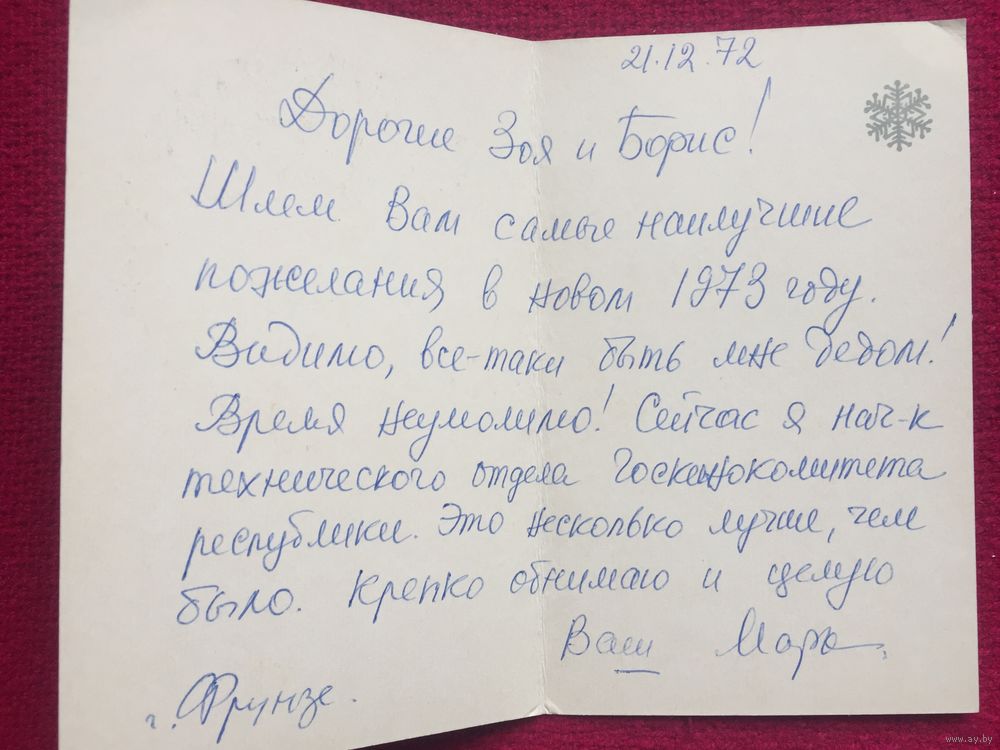 21.12.72
Дорогие Зоя и Борис!
Шлем Вам самые наилучшие
пожелания в новом 1973 году.
Видимо, все-таки быть мне дедом!
Время неумолимо! Сейчас я нач-к
технического отдела Госкинокомитета
республики. Это несколько лучше, чем
было. Крепко обнимаю и целую
Ваш Марк.
г. Фрунзе.
www.ay.by